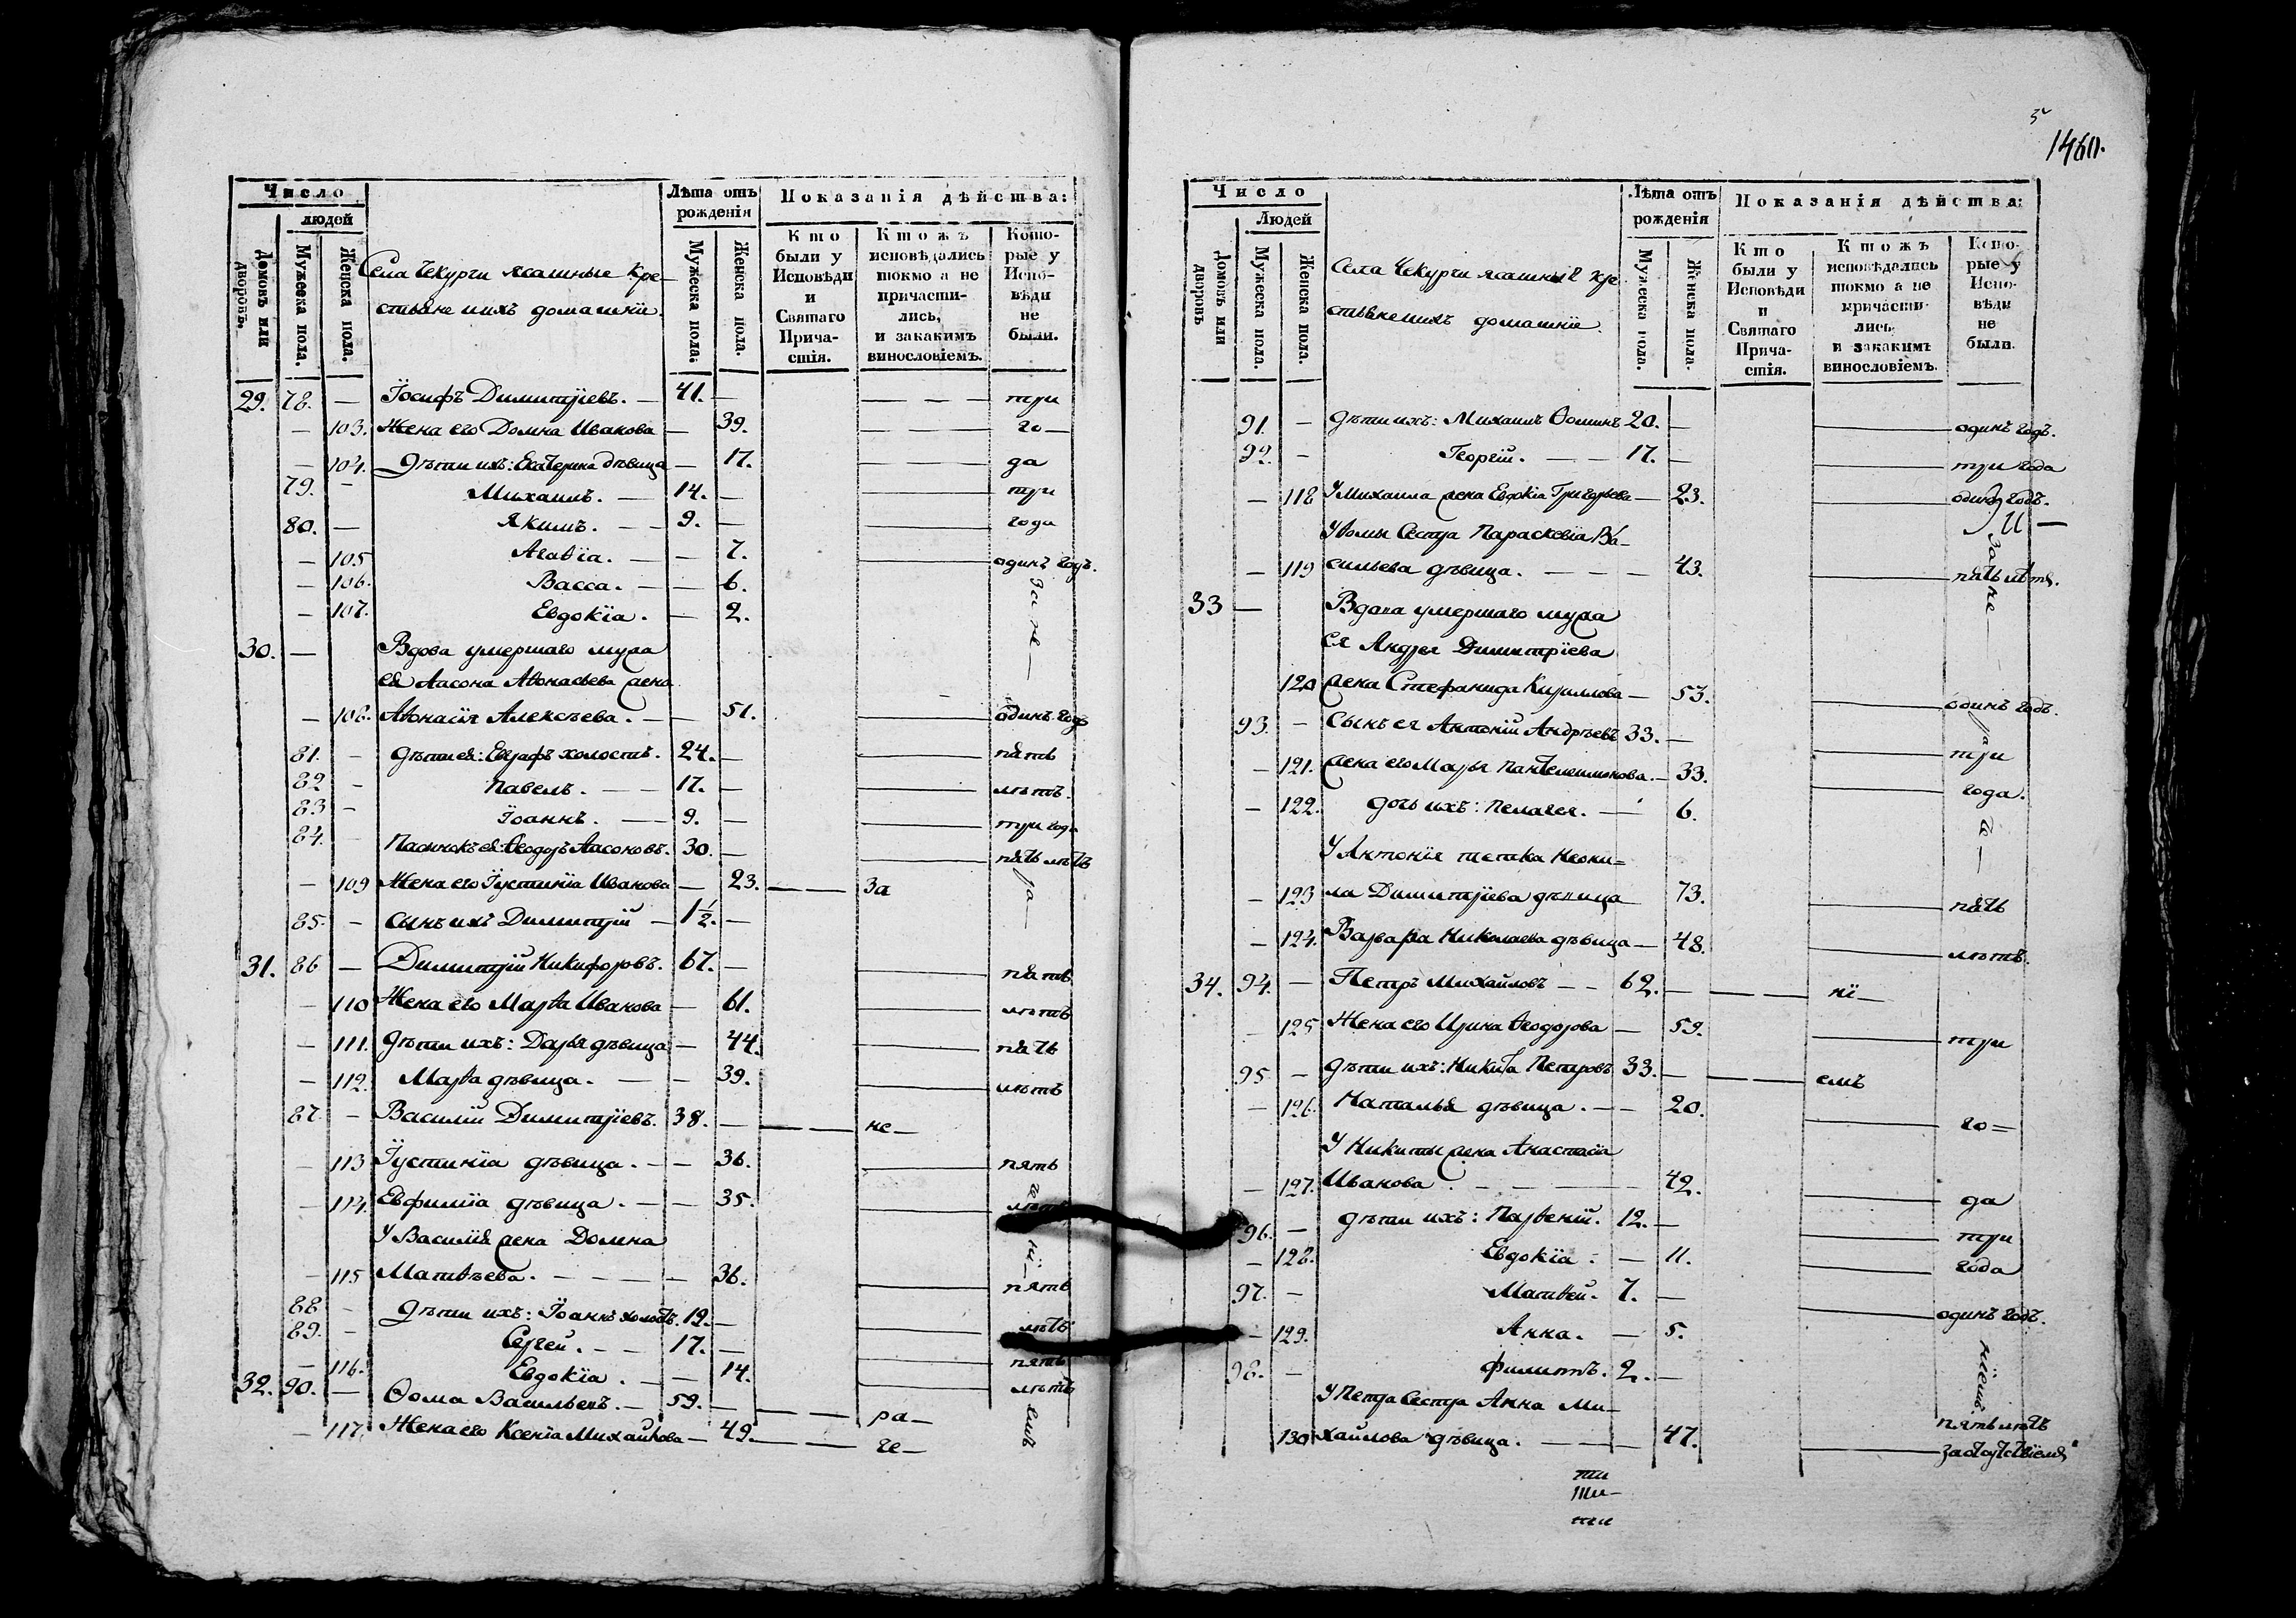 Число
людей
Домовъ или дворовъ.
Мужеска пола.
Женска пола.
Села Чекурчи ясашные кре-
стьяне и ихъ домашнїи.
Лѣта отъ рожденія
Мужеска пола.
Женска пола.
Показанія дѣйства:
Кто были у Исповѣди и Святаго Прича-стія.
Ктожъ исповѣдались токмо а не причасти-лись, и закакимъ винословіемъ.
Кото-рые у Испо-вѣди не были.
29. 78. — Їосифъ Димитрїевъ. — 41. — — — — три
— 103. Жена его Домна Иванова — 39. го—
— 104. Дѣти ихъ: Екатерина дѣвица — 17. да
79. — Михаилъ. — 14. — три
80. — Якимъ. — — 9. — года
— 105 Агаѳїа. — — 7. одинъ годъ.
— 106. Васса. — — 6.
— 107. Евдокїа. — 2.
за не —
30. — Вдова умершаго мужа
ея Іасона Аѳонасьева жена
— 108. Аѳонасїя Алексѣева. — — 51. одинъ годъ
81. — Дѣти ея: Евграфъ холостъ. 24. — пять
82 — Павелъ. — — 17. — лѣтъ.
83 — Їоаннъ. — — 9. — три года
84. — Пасынокъ ея: Ѳеодоръ Іасоновъ. 30. — пять лѣтъ
— 109 Жена его Їустинїа Иванова — 23. — — за
ра—
85. — сынъ ихъ Димитрїй — 1½. —
31. 86 — Димитрїй Никифоровъ. 67. — пять
— 110 Жена его Марѳа Иванова — 61. лѣтъ
— 111. Дѣти ихъ: Дарья дѣвица — 44. пять
— 112. Марѳа дѣвица. — — 39. лѣтъ
87. — Василїй Димитрїевъ. 38. — — — не—
— 113 Їустинїа дѣвица. — — 36. пять
— 114. Евфимїа дѣвица. — — 35. лѣтъ
У Василїя жена Домна
— 115 Матвѣева. — — — — — 36. пять
нї—
88 — Дѣти ихъ: Їоаннъ холостъ. 19. — лѣтъ
89. — Сергей. — — 17. — пять
— 116. Евдокїа. — — 14. лѣтъ
32. 90. — Ѳома Васильевъ. — 59. — — — ра—
— 117. Жена его Ксенїа Михайлова — 49. — — че—
емъ
5
1460.
Число
Людей
Домовъ или дворовъ
Мужеска пола.
Женска пола.
Села Чекурчи ясашные кре
стьяне и ихъ домашнїе
Лѣта отъ рожденія
Мужеска пола.
Женска пола.
Показанія дѣйства:
Кто были у Исповѣди и Святаго Прича-стія.
Ктожъ исповѣдались токмо а не причасти-лись и закакимъ винословіемъ.
Кото-рые у Испо-вѣди не были.
91. — Дѣти ихъ: Михаилъ Ѳоминъ 20. — одинъ годъ.
92. — Георгїй. — — 17. — три года
— 118 У Михаила жена Евдокїа Григорьева — 23. одинъ годъ.
У Ѳомы Сестра Параскевїа Ва-
— 119 сильева дѣвица. — — — 43. пять лѣтъ.
за не —
33 — Вдова умершаго мужа
ея Андрея Димитрїева
120 жена Стефанида Кирилова — 53. одинъ годъ.
ра
93. — Сынъ ея Антонїй Андрѣевъ 33. — три
— 121. жена его Марья Пантелеимонова. — 33. года.
— 122. Дочь ихъ: Пелагея. — 6.
че —
У Антонїя тетка Неони=
— 123 ла Димитрїева дѣвица 73. пять
— 124. Варвара Николаева дѣвица — 48. лѣтъ.
34. 94. — Петръ Михайловъ — — 62. — — — нї—
— 125 Жена его Ирина Ѳеодорова — 59. три
95 — Дѣти ихъ: Никита Петровъ 33. — — — емъ
— 126. Наталья дѣвица. — — 20. го=
У Никиты жена Анастасїа
— 127. Иванова — — — 42. да
96. — Дѣти ихъ: Парѳенїй. 12. — три
— 128. Евдокїа. — 11. года
97. — Матвей. 7. —
— 129. Анна. — 5. одинъ годъ.
98. — Филиппъ. 2. —
нїемъ
У Петра Сестра Анна Ми—
130 хайлова дѣвица. — — — 47. пять лѣтъ
за отсутствїемъ